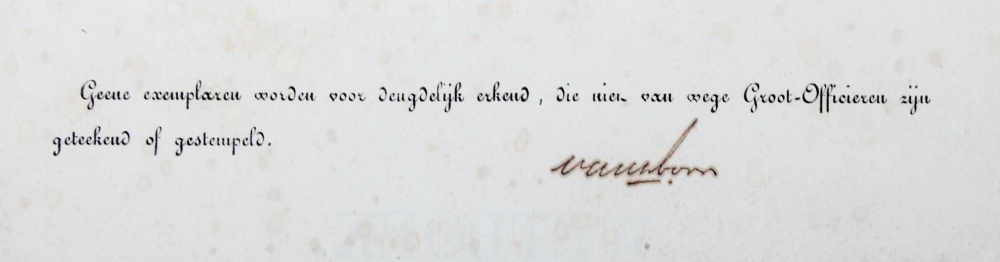 Geene exemplaren worden voor deugdelijk erkend, die niet van wege Groot-Officieren zijn
geteekend of gestempeld.